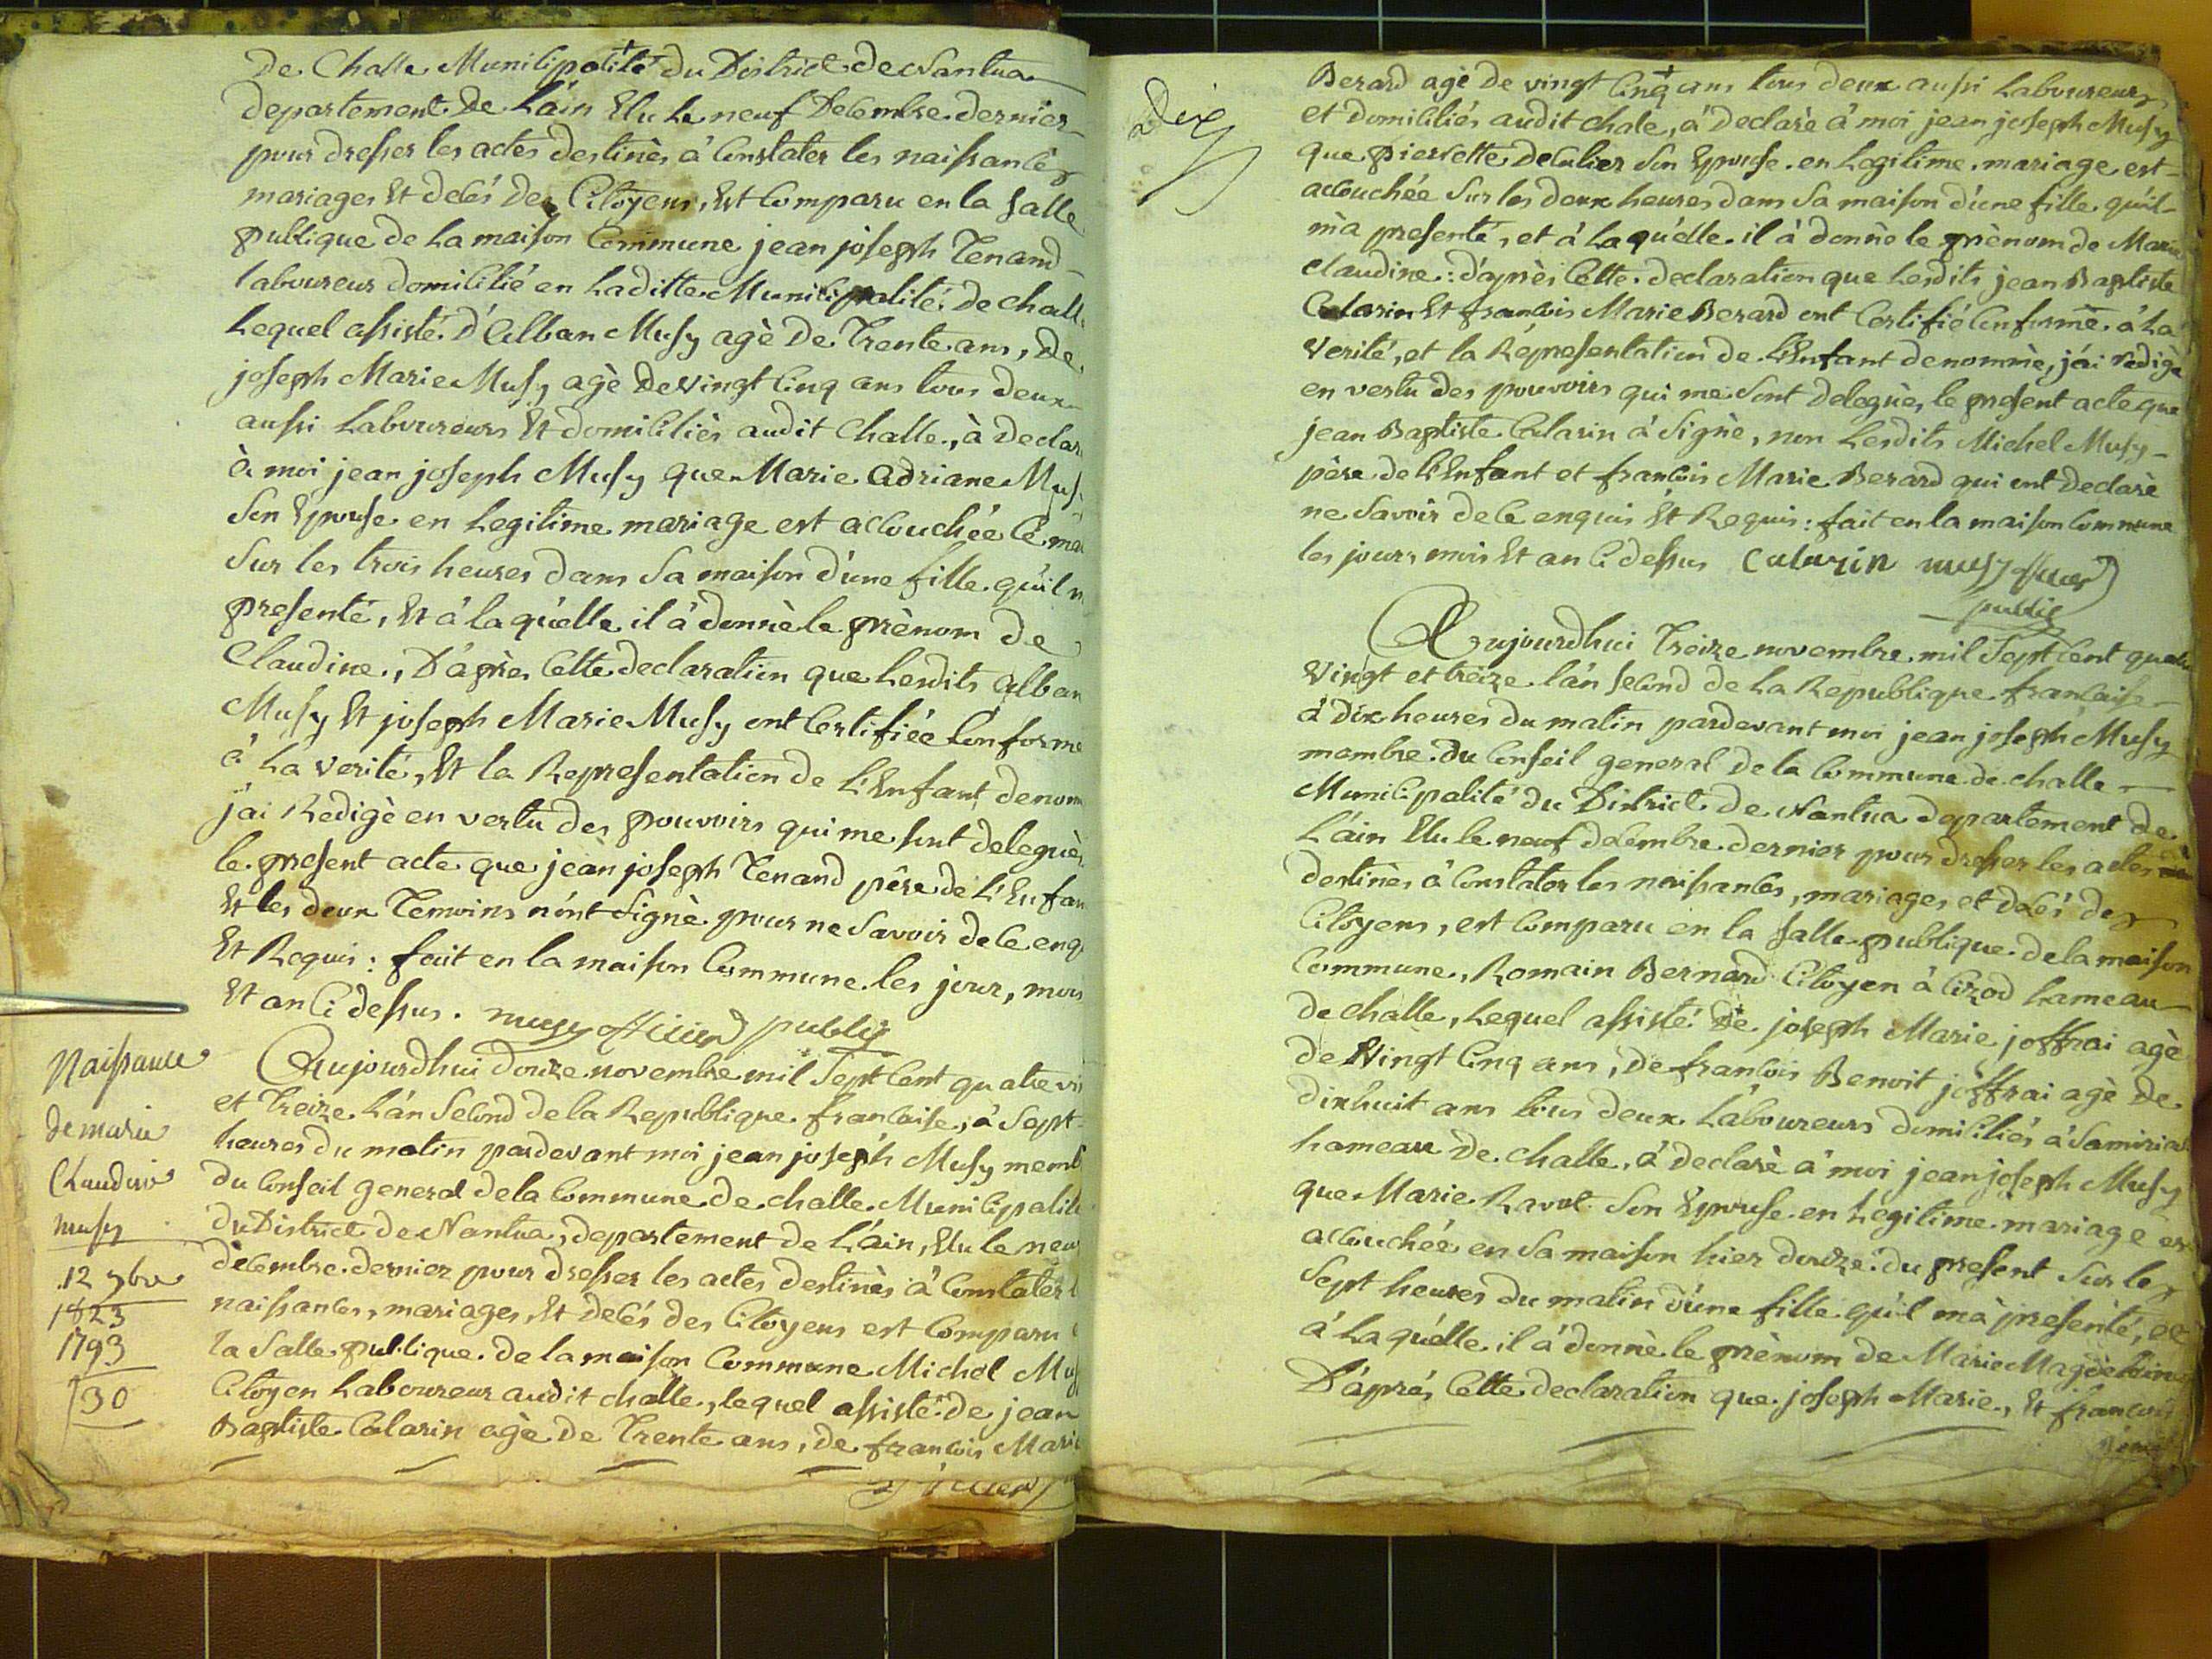 De Challe Municipalité du District de Nantua
departement De L'áin Elu Le neuf Decembre dernier
pour dresser les actes destinès à Constater les naissances
mariages Et decés Des Citoyens, Est Comparu en la salle
publique de La maison Commune jean joseph Tenand
laboureur domicilié en Laditte Municipalité De chall
Lequel assisté D'Alban Musy agè De Trente ans, De
joseph Marie Musy agè De vingt Cinq ans tous deux
aussi Laboureurs Et domiciliès audit Challe, à Declar
à moi jean joseph Musy que Marie Adriane Mus
Son Epouse en Legitime mariage est accouchée Ce ma
Sur les trois heures dans Sa maison d'une fille qu'il m
presenté, Et á laquélle il á donnè le prènom de
Claudine, D'áprès Cette declaration que Lesdits Alban
Musy Et joseph Marie Musy ont Certifiée Conforme
á La verité, Et la Representation de L'Enfant denom
j'ai Redigè en vertu Des pouvoirs qui me sont deleguès
le present acte que jeàn joseph Tenand père de L'Enfan
Et les deux Temoins n'ónt Signè pour ne Savoir de Ce enq
Et Requis : fait en la maison Commune les jour, mois
Et an Ci dessus. musy officier public
Naissance
de marie
Claudine
musy
12 9bre
1823
1793
30
Aujourdhui Douze novembre mil Sept Cent quatre vin
et Treize L'án Second de la Republique francaise, à Sept
heures du matin pardevant moi jean joseph Musy memb
du Conseil general dela Commune de challe Municipalit
du District de Nantua, departement de L'áin, Elu le neu
dècembre dernier pour dresser les actes destinès á Constater l
naissances, mariages, Et decés des Citoyens est Comparu
la Salle publique de la maison Commune Michel Mus
Citoyen Laboureur audit challe, lequel assisté de jean
Baptiste Calarin agè De Trente ans, de francois Marie
Dix
Berard agè De vingt Cinq ans tous deux aussi Laboureurs
et domiciliés audit chale, á Declarè á moi jean joseph Musy
que pierrette decalier Son Epouse en Legitime mariage est
accouchée Sur les deux heures dans Sa maison d'úne fille qu'il
m'à presenté, et á Laquélle il à donnè le prènom de Marie
claudine : d'áprès Cette declaration que Lesdits jean Baptiste
Calarin Et francois Marie Berard ont Certifié Conforme á La
verité, et la Représentation de L'Enfant denommè, j'ái redigè
en vertu des pouvoirs qui me sont Deleguès, le present acte que
jean Baptiste Calarin á Signè, non Lesdits Michel Musy
père de L'Enfant et francois Marie Berard qui ont Declarè
ne Savoir de Ce enquis Et Requis : fait en la maison Commune
les jour, mois Et an Ci dessus Calarin musy officier
public
Aujourdhui Treize novembre mil Sept Cent quatre
Vingt et treize l'án second de La Republique francaise
á Dix heures du matin pardevant moi jean joseph Musy
membre du Conseil general De la Commune de challe
Municipalité du District de Nantua departement de
L'áin Elu le neuf decembre dernier pour dresser les actes
destinès à Constater les naissances, mariages, et decés des
Citoyens, est Comparu en la salle publique de la maison
Commune, Romain Bernard Citoyen à Cizod hameau
de challe, Lequel assisté De joseph Marie joffrai agè
de Vingt Cinq ans, De françois Benoit joffrai agè De
dixhuit ans tous deux Láboureurs domiciliés á Samiriat
hameau De challe, á declarè á moi jean joseph Musy
que Marie Ravot Son Epouse en Legitime mariage es
accouchée en Sa maison hier douze du present Sur les
Sept heures du matin d'úne fille qu'il m'à presenté, et
á Laquélle il á donnè le prènom de Marie Magdeleine
D'áprés Cette declaration que joseph Marie, Et francois